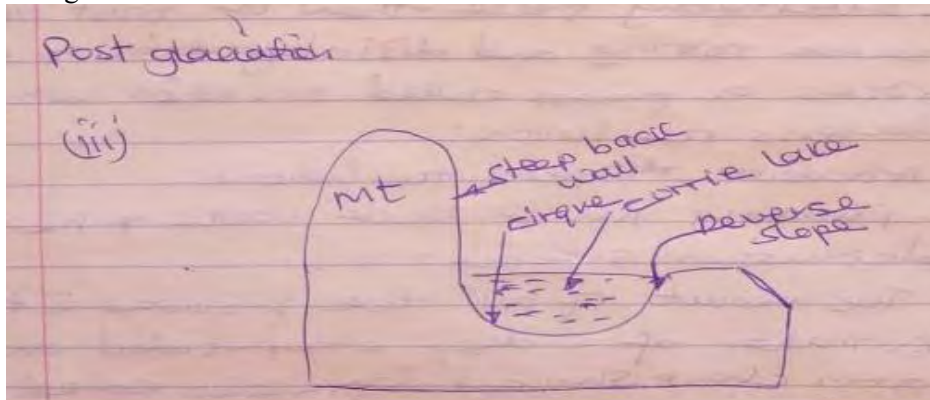 Post glaciation
(iii)
Mt
steep back
wall
cirque
corrie lake
Reverse
slope